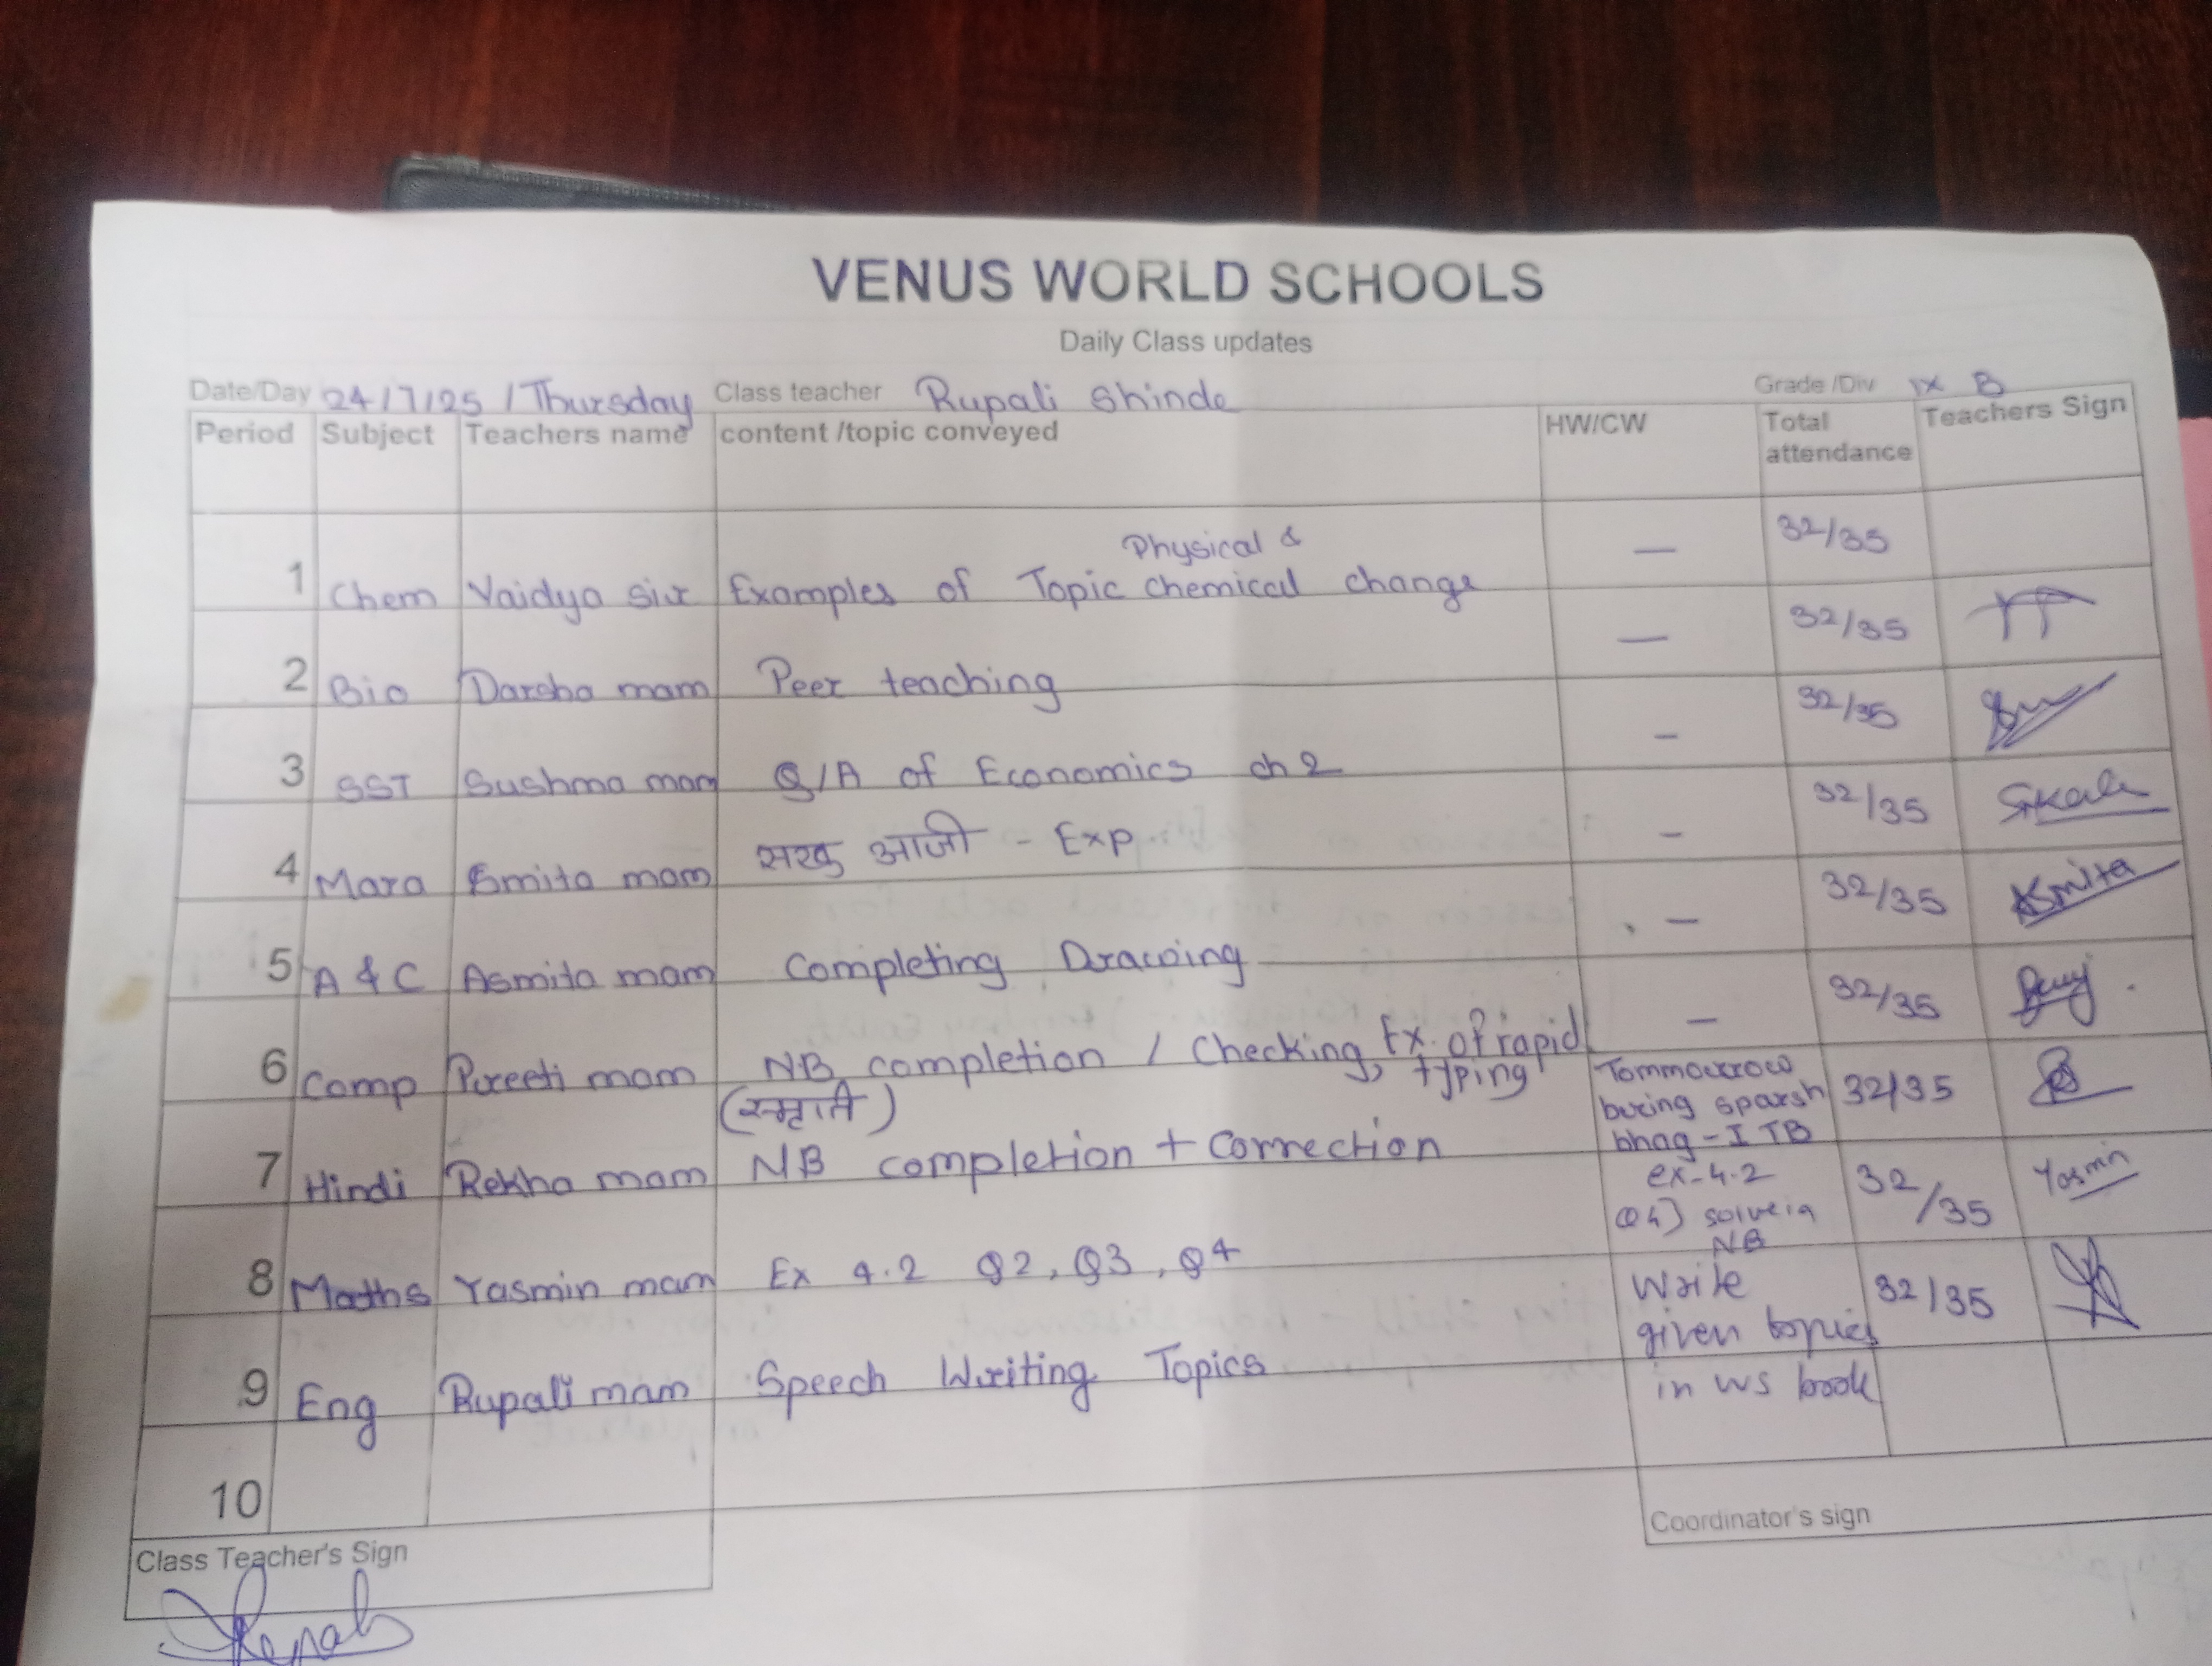 VENUS WORLD SCHOOLS
Daily Class updates
Date/Day 24/7/25 / Thursday Class teacher Rupali Shinde Grade /Div IX B
Period Subject Teachers name content /topic conveyed HW/CW Total attendance Teachers Sign
1 Chem Vaidya sir Examples of Topic Physical & chemical change — 32/35
2 Bio Darsha mam Peer teaching — 32/35
3 SST Sushma mam Q/A of Economics ch 2 — 32/35
4 Mara Smita mam सखू आजी - Exp — 32/35
5 A & C Asmita mam Completing Drawing — 32/35 Asmita
6 Comp Preeti mam NB completion / Checking, Ex. of rapid typing — 32/35
7 Hindi Rekha mam NB completion + Correction Tommorrow bring sparsh bhag - I TB 32/35
8 Maths Yasmin mam Ex 4.2 Q2, Q3, Q4 ex-4.2 Q4) solve in NB 32/35 Yasmin
9 Eng Rupali mam Speech Writing Topics Write given topics in WS book 32/35
10
Class Teacher's Sign
Coordinator's sign